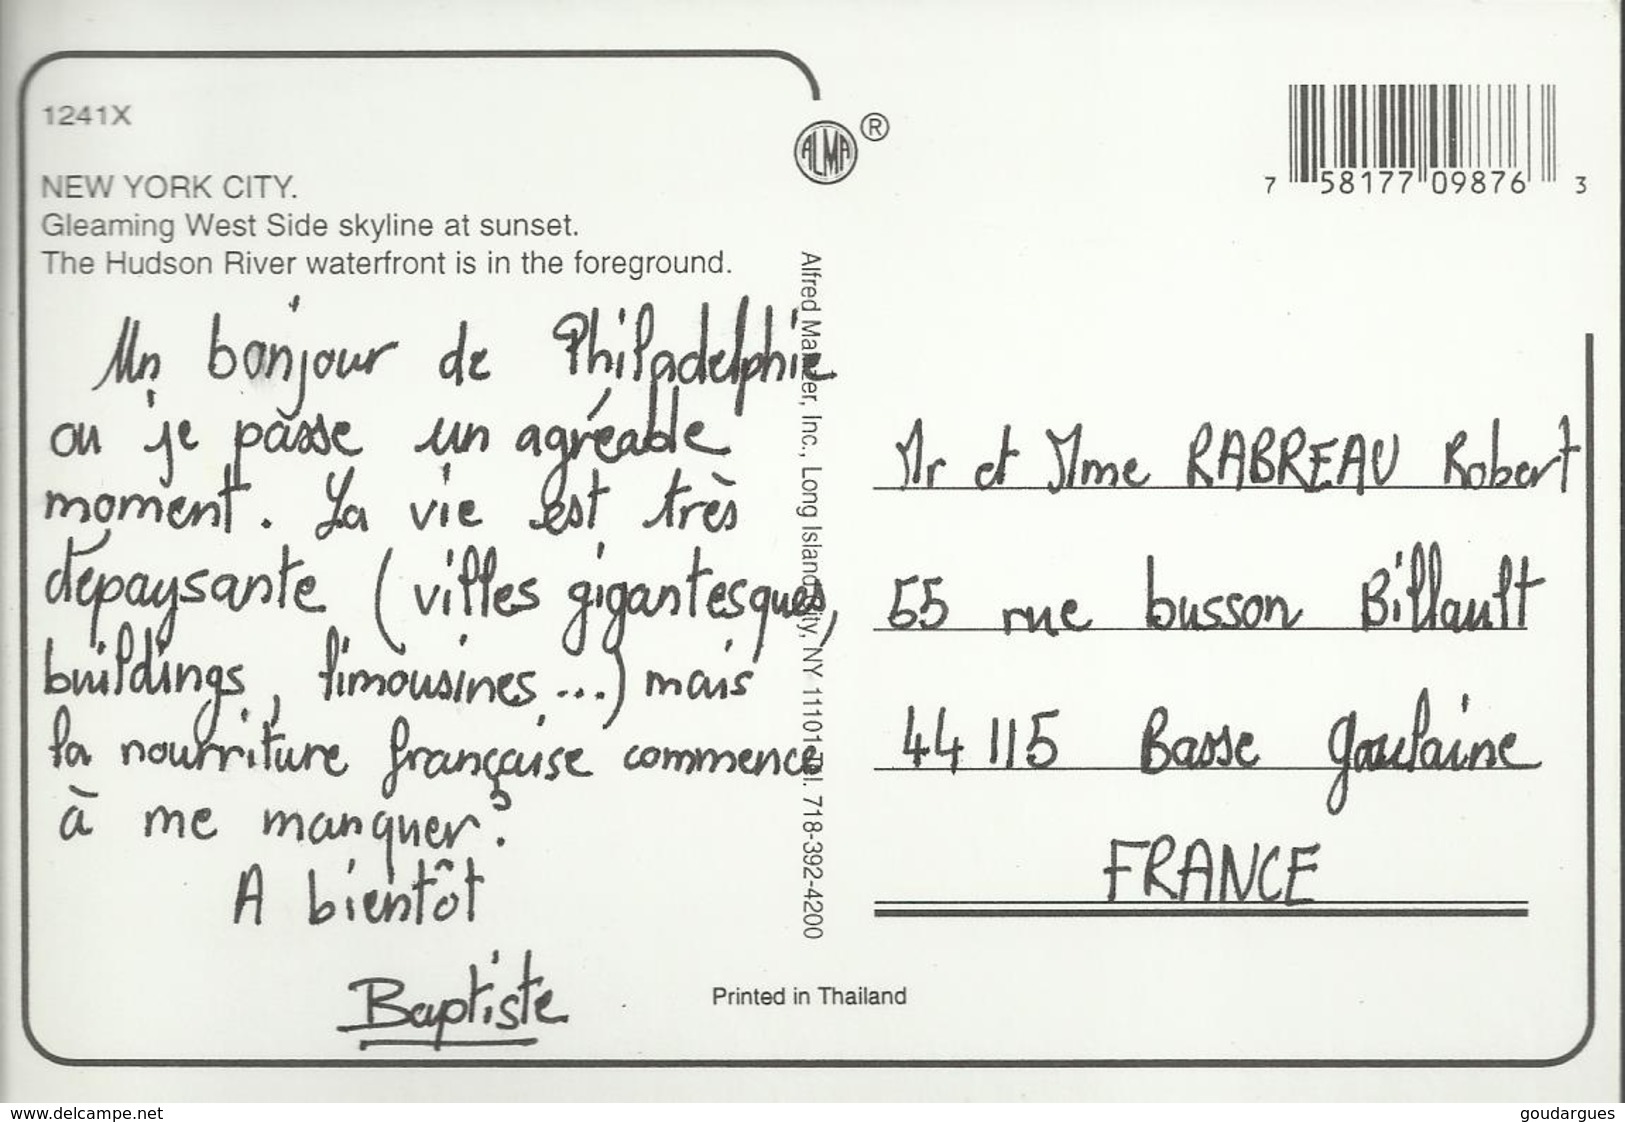 1241X
NEW YORK CITY.
Gleaming West Side skyline at sunset.
The Hudson River waterfront is in the foreground.
Un bonjour de Philadelphie
ou je passe un agréable
moment. La vie est très
dépaysante (villes gigantesques,
buildings, limousines...) mais
la nourriture française commence
à me manquer.
A bientôt
Baptiste
ALMA ®
Alfred Mainzer, Inc., Long Island City, NY 11101 Tel. 718-392-4200
Printed in Thailand
7 58177 09876 3
Mr et Mme RABREAU Robert
55 rue busson Billault
44 115 Basse goulaine
FRANCE
www.delcampe.net
goudargues